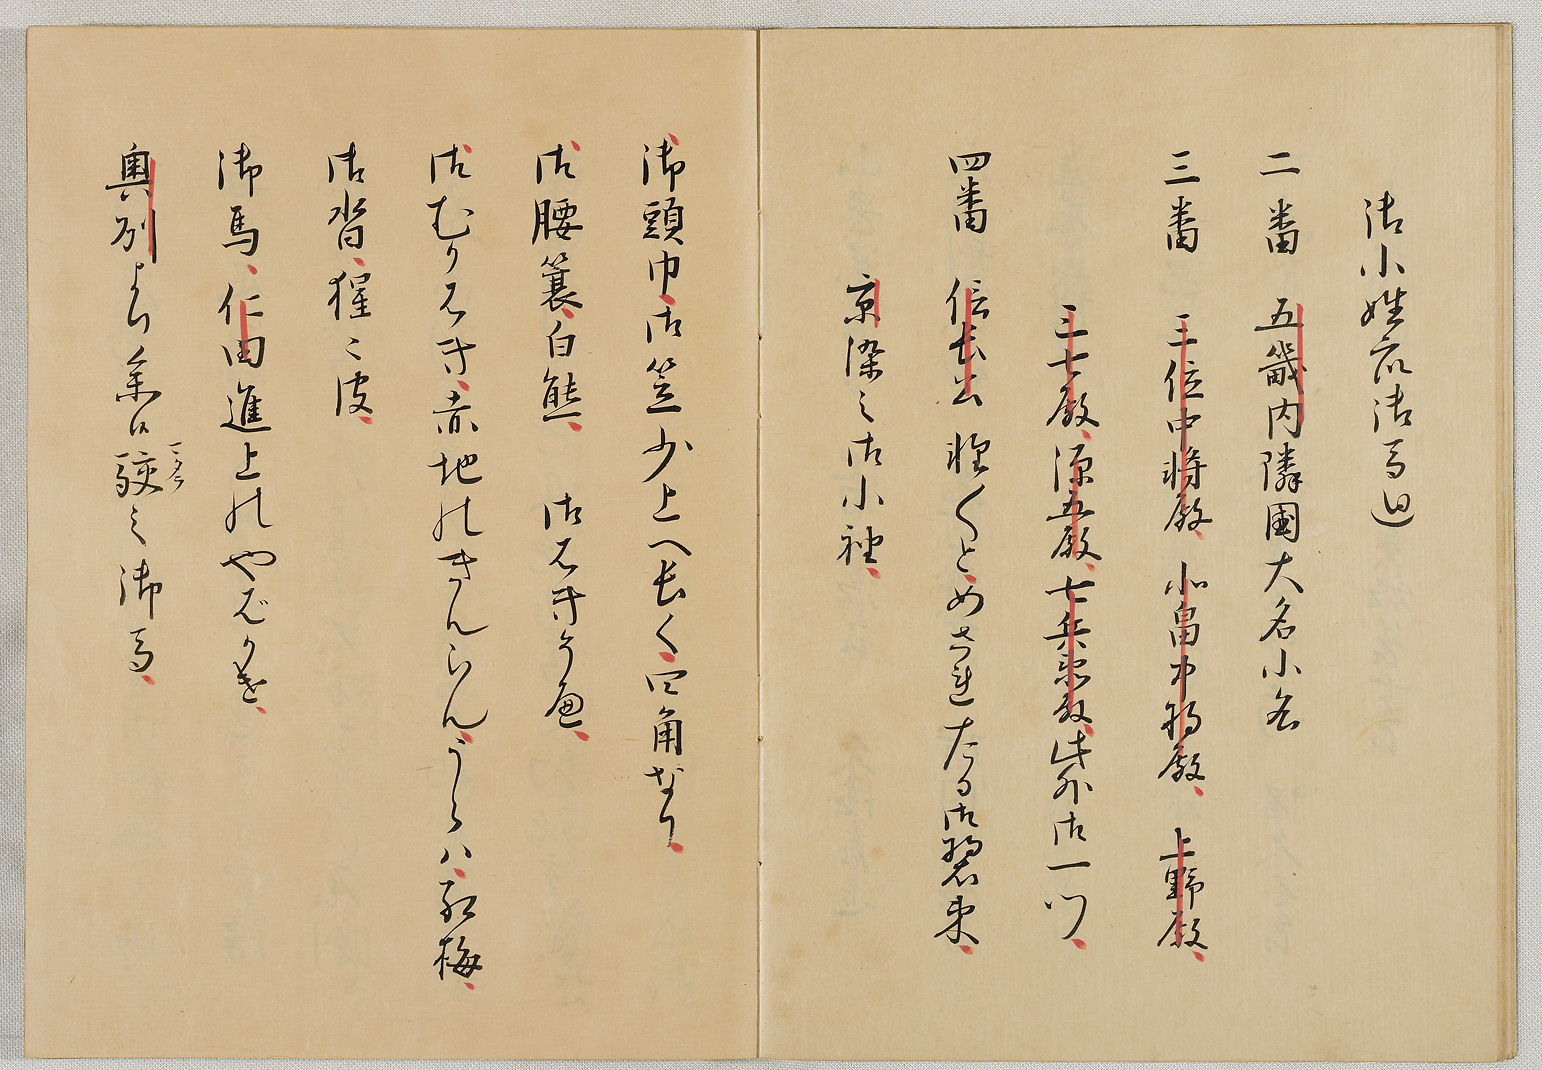 御小姓衆御馬廻
二番　五畿内隣國大名小名
三番　三位中将殿、北畠中将殿、上野殿、
三七殿、源五殿、七兵衛殿、此外御一門、
四番　信長公軽〱と、めされたる御装束、
京染之御小袖、
御頭巾、御笠少上へ長く、四角なり、
御腰簔、白熊、　御はき
御むかはき、赤地のきんらん、うらハ、紅梅、
御沓、猩ゝ皮、
御馬、仁田進上のやばかげ、
奥列より参候駮之御馬、